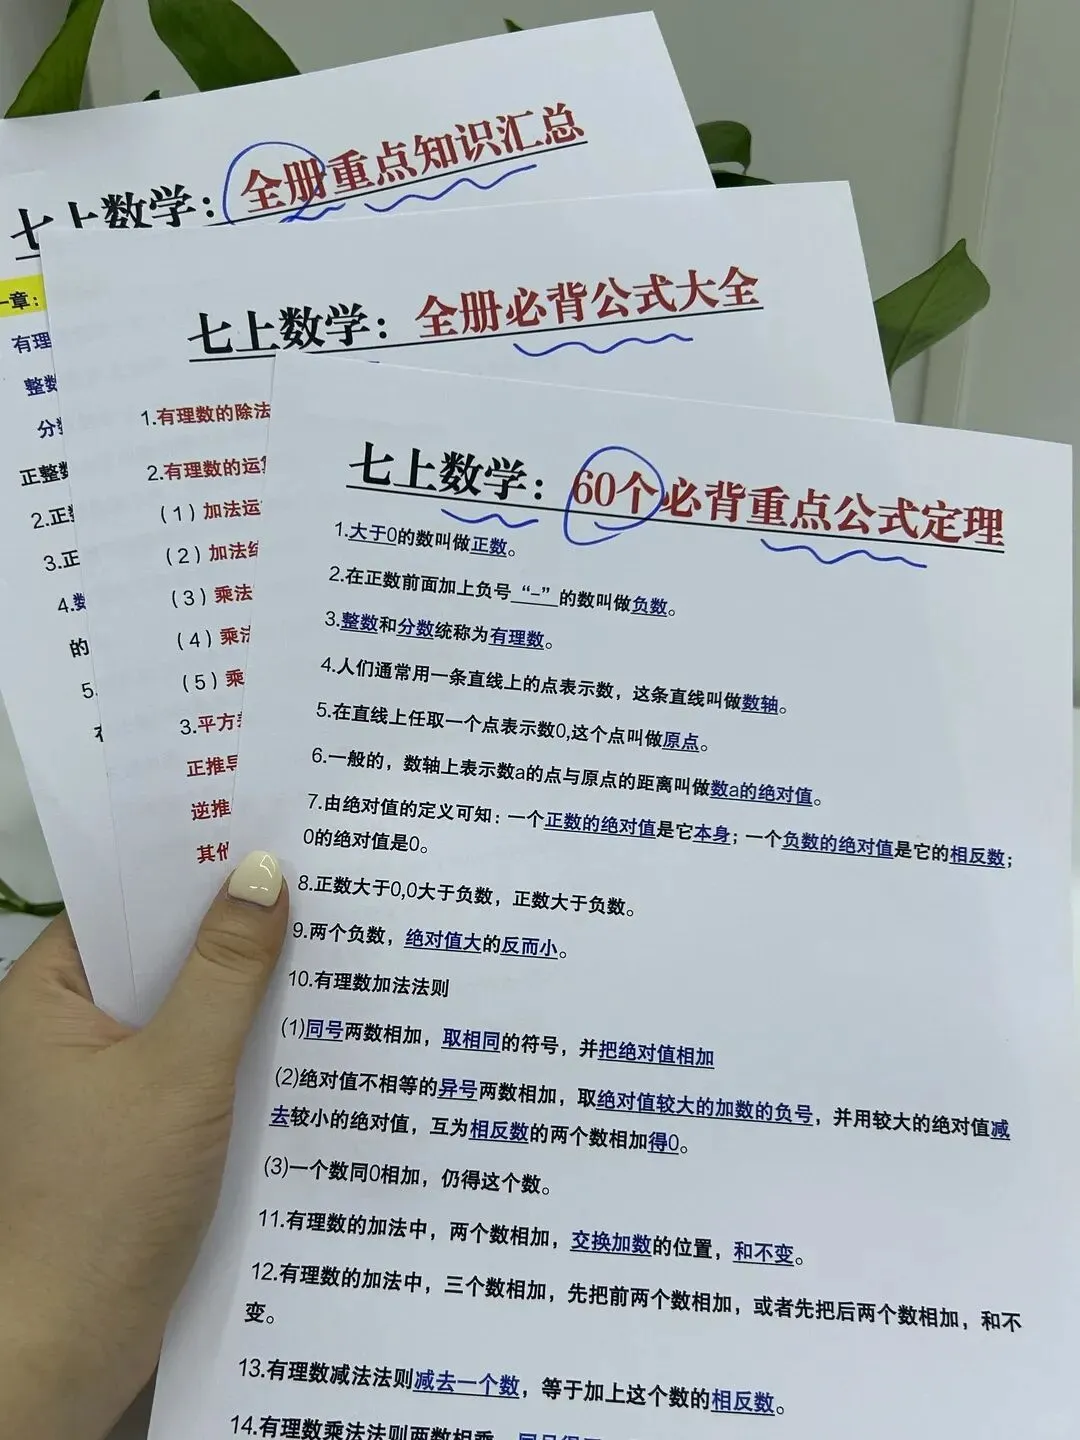 七上数学：全册重点知识汇总
一章：
有理
整数
分数
正整数
2.正整
3.正
4.数
的
5.
在
七上数学：全册必背公式大全
1.有理数的除法
2.有理数的运算
（1）加法运
（2）加法结
（3）乘法
（4）乘法
（5）乘
3.平方差
正推导
逆推
其他
七上数学：60个必背重点公式定理
1.大于0的数叫做正数。
2.在正数前面加上负号“-”的数叫做负数。
3.整数和分数统称为有理数。
4.人们通常用一条直线上的点表示数，这条直线叫做数轴。
5.在直线上任取一个点表示数0,这个点叫做原点。
6.一般的，数轴上表示数a的点与原点的距离叫做数a的绝对值。
7.由绝对值的定义可知：一个正数的绝对值是它本身；一个负数的绝对值是它的相反数；
0的绝对值是0。
8.正数大于0,0大于负数，正数大于负数。
9.两个负数，绝对值大的反而小。
10.有理数加法法则
(1)同号两数相加，取相同的符号，并把绝对值相加
(2)绝对值不相等的异号两数相加，取绝对值较大的加数的负号，并用较大的绝对值减
去较小的绝对值，互为相反数的两个数相加得0。
(3)一个数同0相加，仍得这个数。
11.有理数的加法中，两个数相加，交换加数的位置，和不变。
12.有理数的加法中，三个数相加，先把前两个数相加，或者先把后两个数相加，和不
变。
13.有理数减法法则减去一个数，等于加上这个数的相反数。
14.有理数乘法法则两数相乘，同号得